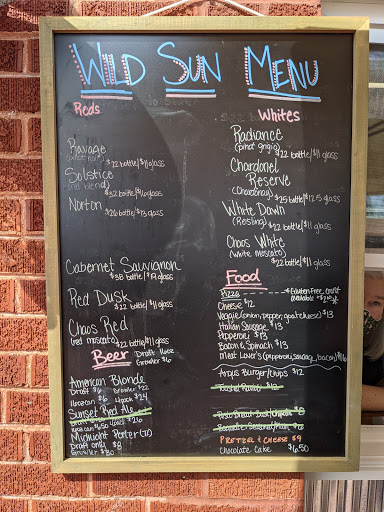 WILD SUN MENU
Reds
Ravage
(pinot noir)
$22 bottle/$11 glass
Solstice
(red blend)
$22 bottle/$11 glass
Norton
$26 bottle/$13 glass
Cabernet Sauvignon
$38 bottle/$19 glass
Red Dusk
$22 bottle/$11 glass
Chaos Red
(red moscato) $22 bottle/$11 glass
Beer
Draft 16oz
Growler 64
American Blonde
Draft $6 Growler $22
16oz can $6 4pack $24
Sunset Red Ale
16oz can $6.50 4pack $26
Midnight Porter
Draft only $8
Growler $30
Whites
Radiance
(pinot grigio)
$22 bottle/$11 glass
Chardonel
Reserve
(Chardonnay)
$25 bottle/$12.5 glass
White Dawn
(Reisling)
$22 bottle/$11 glass
Chaos White
(white moscato)
$22 bottle/$11 glass
Food
Pizza
Gluten Free Crust
available
Cheese $12
Veggie (onion, pepper, goat cheese) $13
Italian Sausage $13
Pepperoni $13
Bacon & Spinach $13
Meat Lover's (pepperoni, sausage, bacon) $16
Angus Burger/Chips $12
Toasted Ravioli $12
PRETZEL & CHEESE $9
Chocolate Cake $6.50